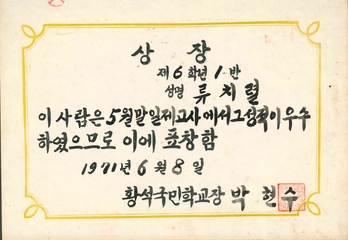 상 장
제 6 학년 1 반
성명 류 치 렬
이 사람은 5월말 일제고사에서 그 성적이 우수
하였으므로 이에 표창함
1971년 6 월 8 일
황석국민학교장 박 현 수